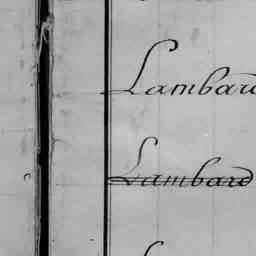 Lambard
Lambard